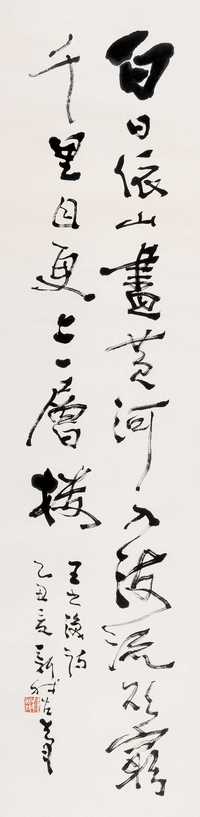 白日依山盡黃河入海流欲窮
千里目更上一層樓
王之渙詩
乙丑夏新